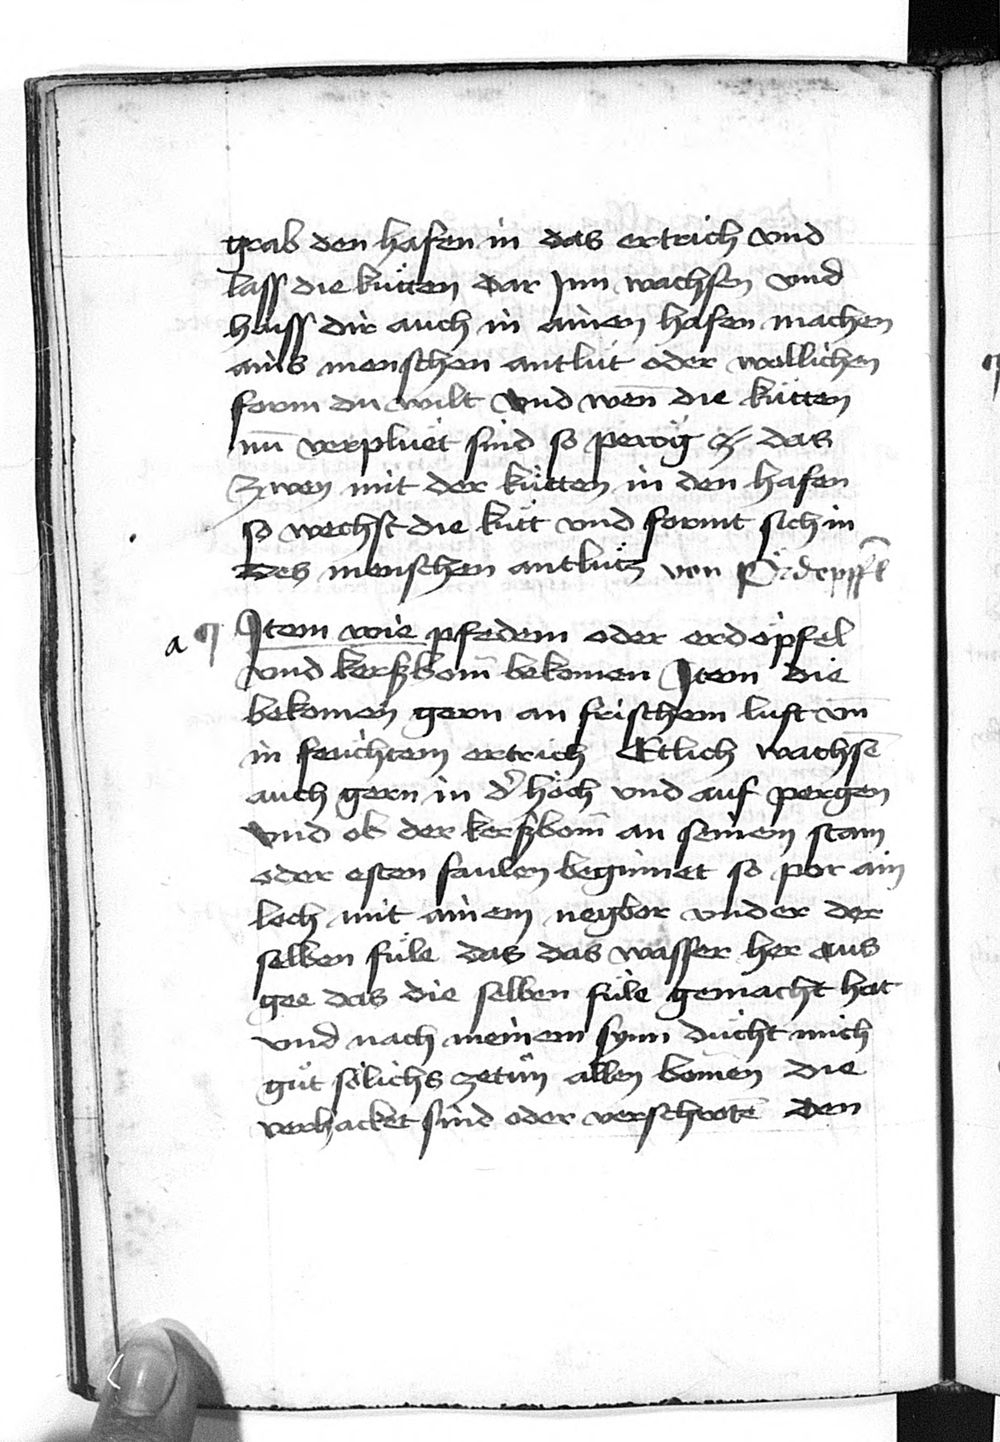 grab den hafen in das ertrich vnd
lass die kütten dar jnn wachsen vnd
haiss dir auch in ainen hafen machen
ains menschen antlüt oder wöllichen
form du wilt vnd wen̄ die kütten
nū verplüet sind so pewg das
zwey mit der kütten in den hafen
so wechst die kütt vnd formt sich in
des menschen antlütz von Erdepffel
a ¶ Item wie pfedem oder erdöpfel
vnd kerßbom̄ bekomen Item die
bekomen gern an frischem luft vn̄
in feüchtem ertrich Etlich wachsē
auch gern in d' höch vnd auf pergen
vnd ob der kerßbom̄ an seinem stam
oder esten faulen beginnet so por ain
loch mit ainem negbor vnder der
selben füle das das wasser her aus
gee das die selben füle gemacht hat
vnd nach meinem synn dücht mich
güt sölichs zetün allen bömen die
verhacket sind oder verschrotē den